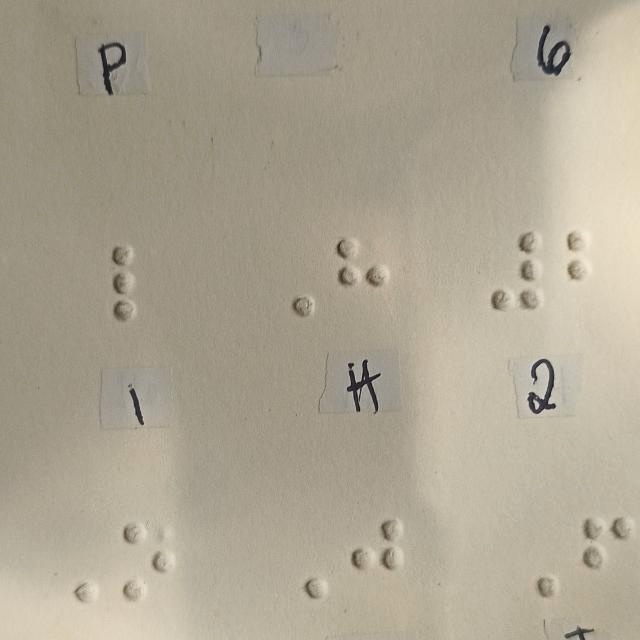 P 6
⠇ ⠠⠓ ⠼⠃
l H 2
⠠⠚ ⠠⠋